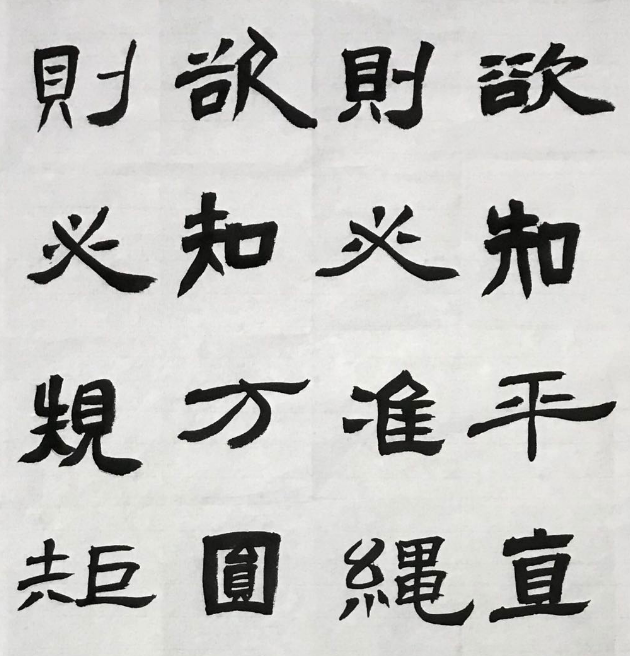 欲知平直
則必准繩
欲知方圓
則必規矩